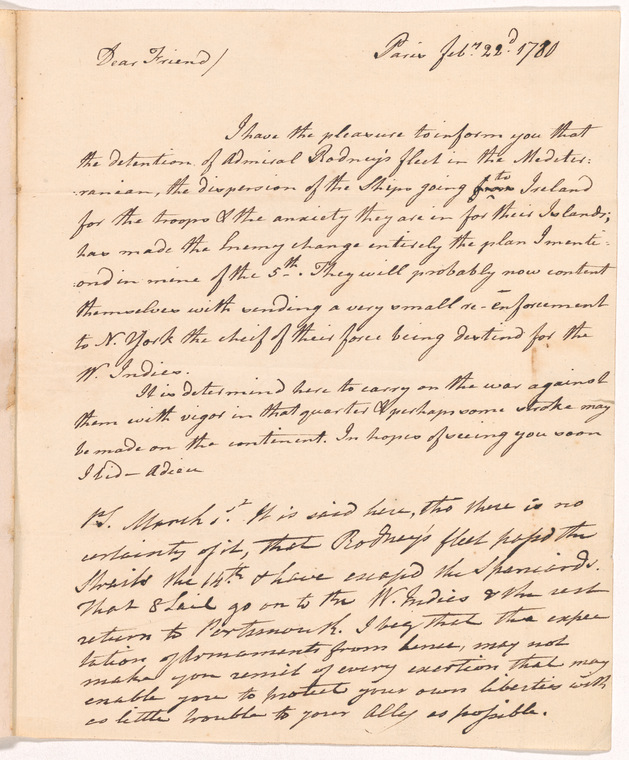 Dear Friend/
Paris feb.ry 22d. 1780
I have the pleasure to inform you that
the detention of Admiral Rodney's fleet in the Mediter:
ranian, the dispersion of the Ships going from to Ireland
for the troops & the anxiety they are in for their Islands;
has made the Enemy change entirely the plan I menti-
ond in mine of the 5th. They will probably now content
themselves with sending a very small re-enforcement
to N. York the chief of their force being destind for the
W. Indies.
It is determind here to carry on the war against
them with vigor in that quarter & perhaps some stroke may
be made on the continent. In hopes of seeing you soon
I bid - Adieu
P.S. March 1st. It is said here, tho there is no
certainty of it, that Rodney's fleet passd the
Straits the 14th & have escapd the Spaniards.
That 8 Sail go on to the W. Indies & the rest
return to Portsmouth. I beg that the expec
tation of Armaments from hence, may not
make you remit of every exertion that may
enable you to protect your own liberties with
as little trouble to your Ally as possible.